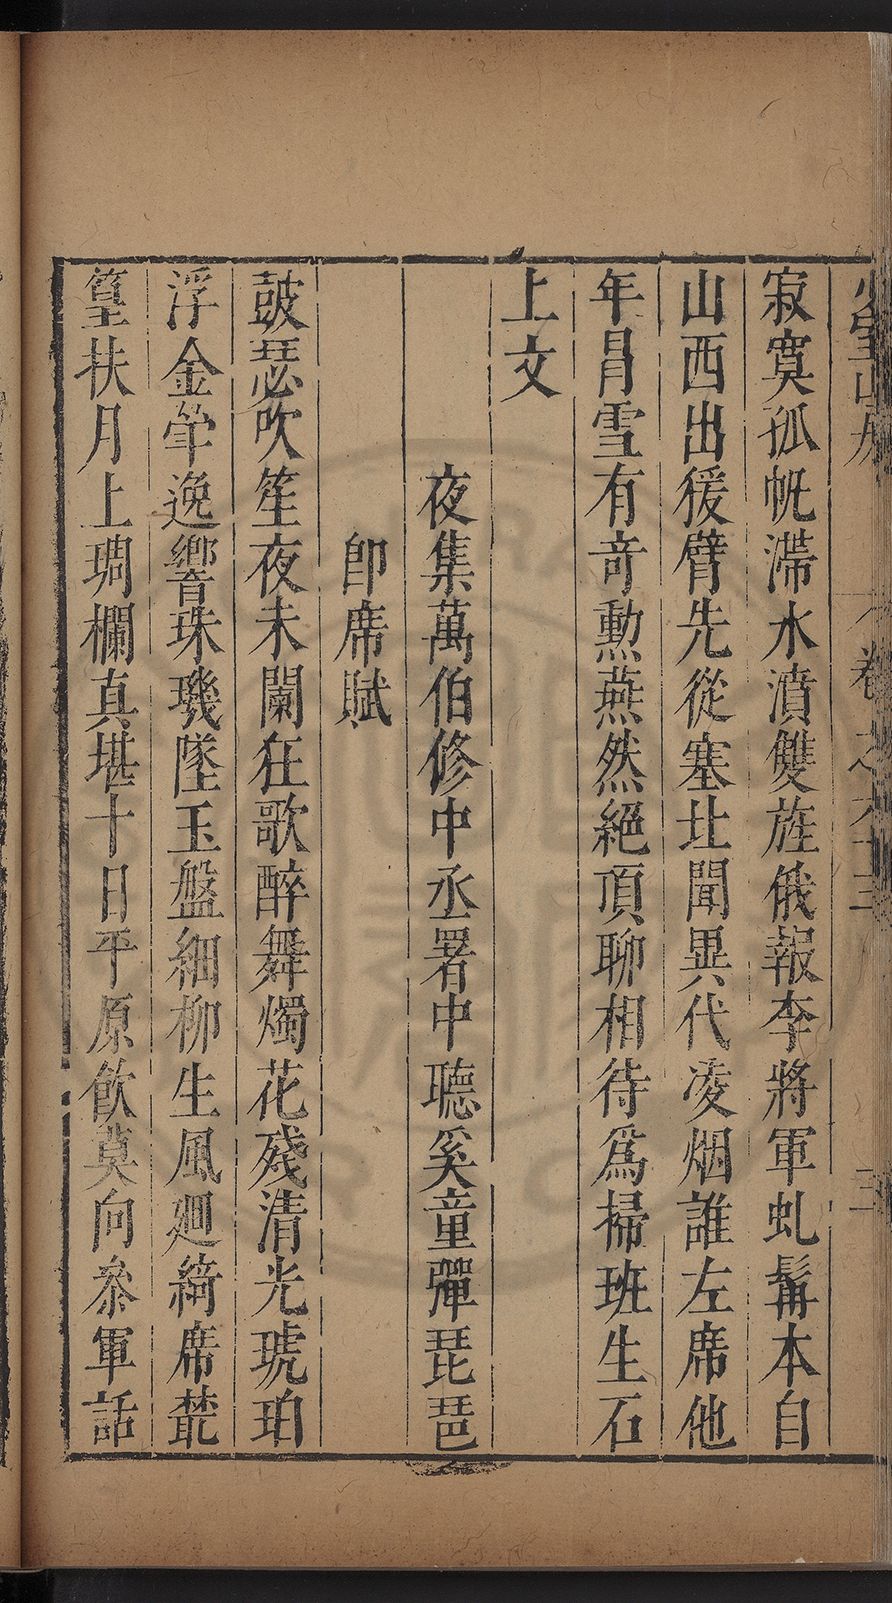 寂寞孤帆滯水濆雙旌俄報李將軍虬髯本自
山西出猨臂先從塞北聞異代凌烟誰左席他
年冐雪有奇勲燕然絕頂聊相待爲掃班生石
上文
夜集萬伯修中丞署中聽奚童彈琵琶
卽席賦
鼓瑟吹笙夜未闌狂歌醉舞燭花殘清光琥珀
浮金斝逸響珠璣墜玉盤細柳生風廻綺席叢
篁扶月上琱欄真堪十日平原飲莫向叅軍話